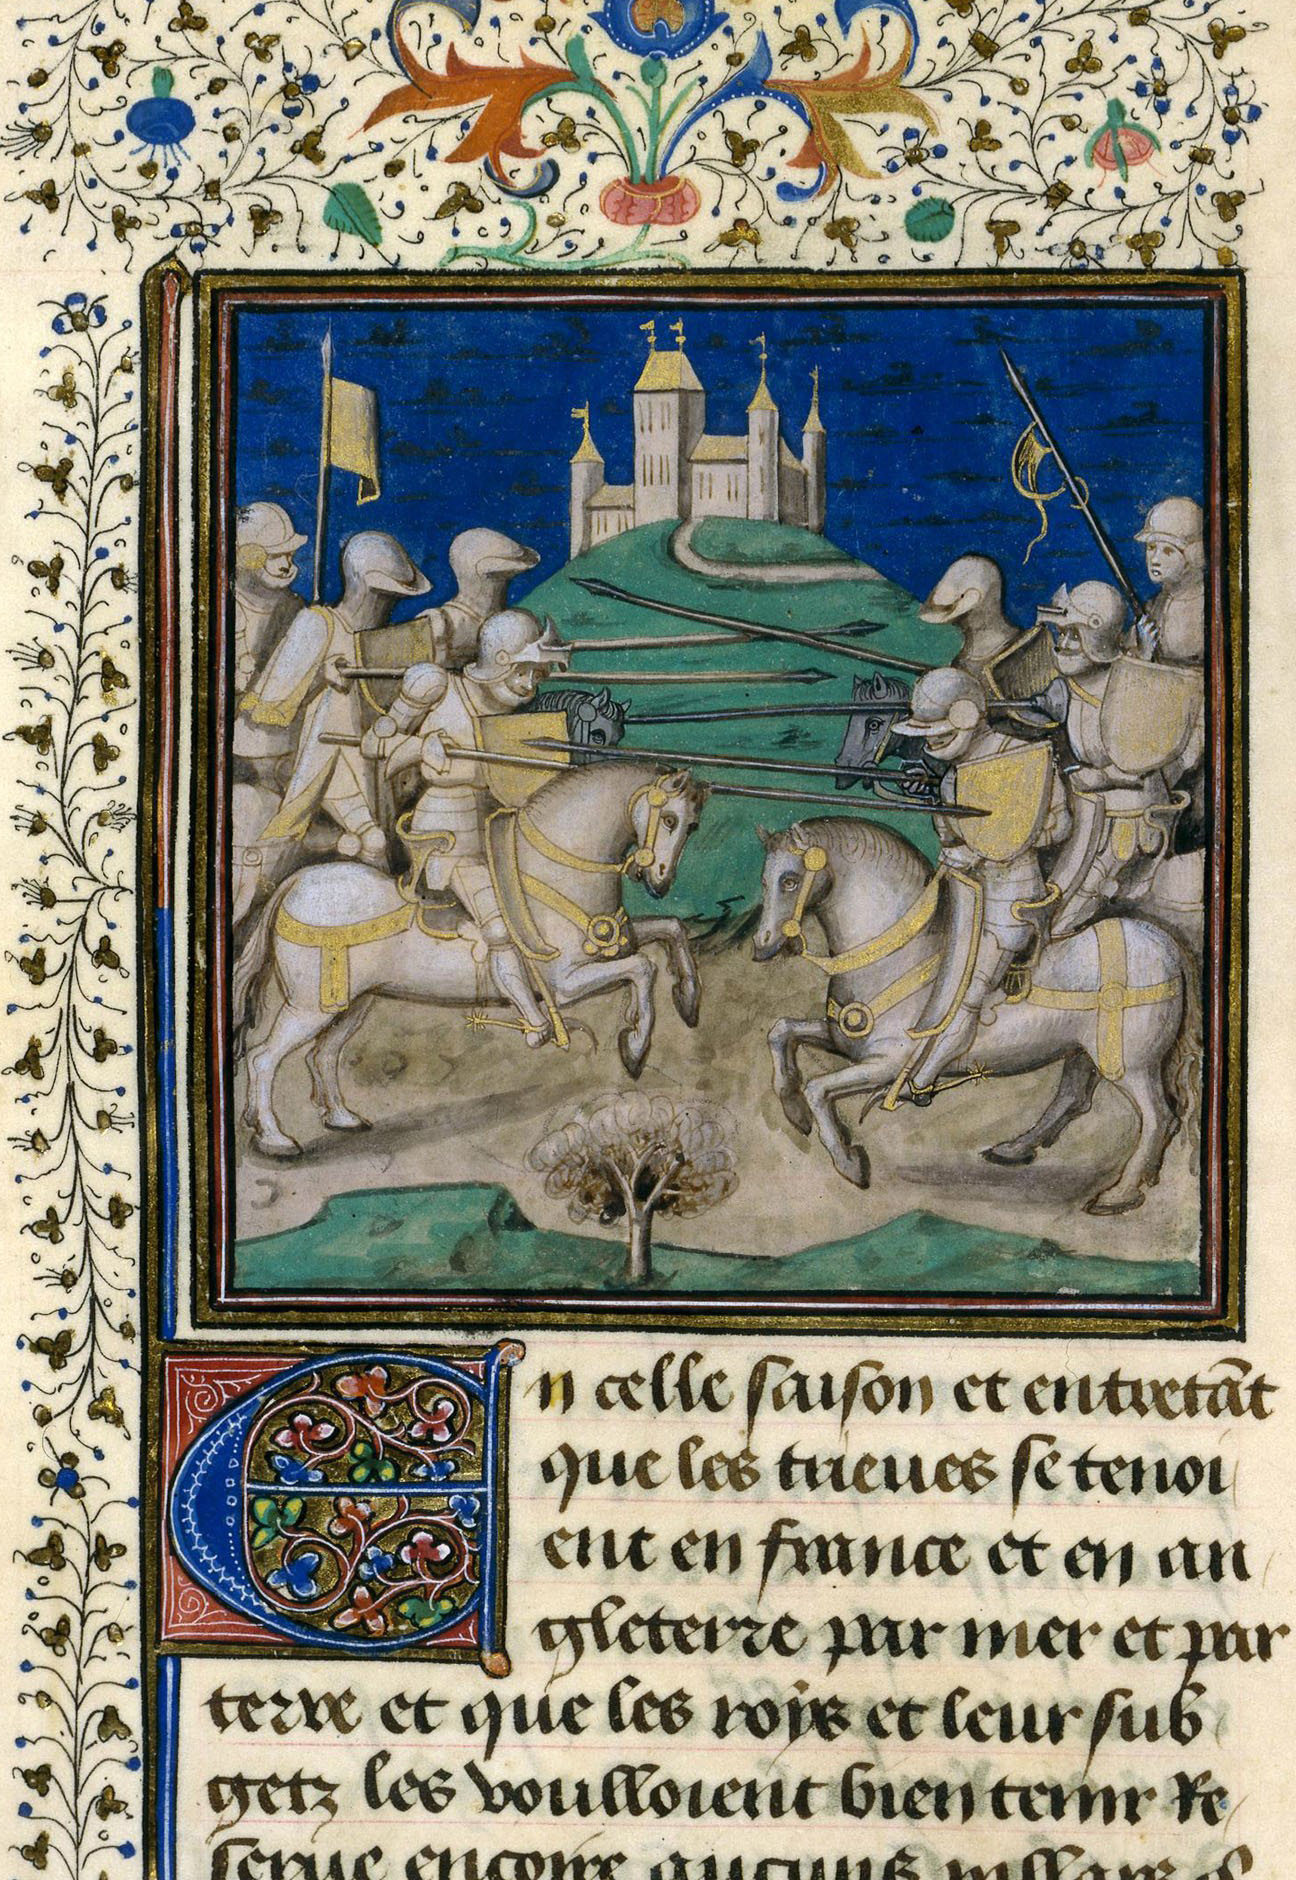 En celle saison et entretãt
que les trieues se tenoi
ent en france et en an
gleterre par mer et par
terre et que les roys et leur sub
getz les voulloient bien tenir Re
serue encoire aucuns pillars